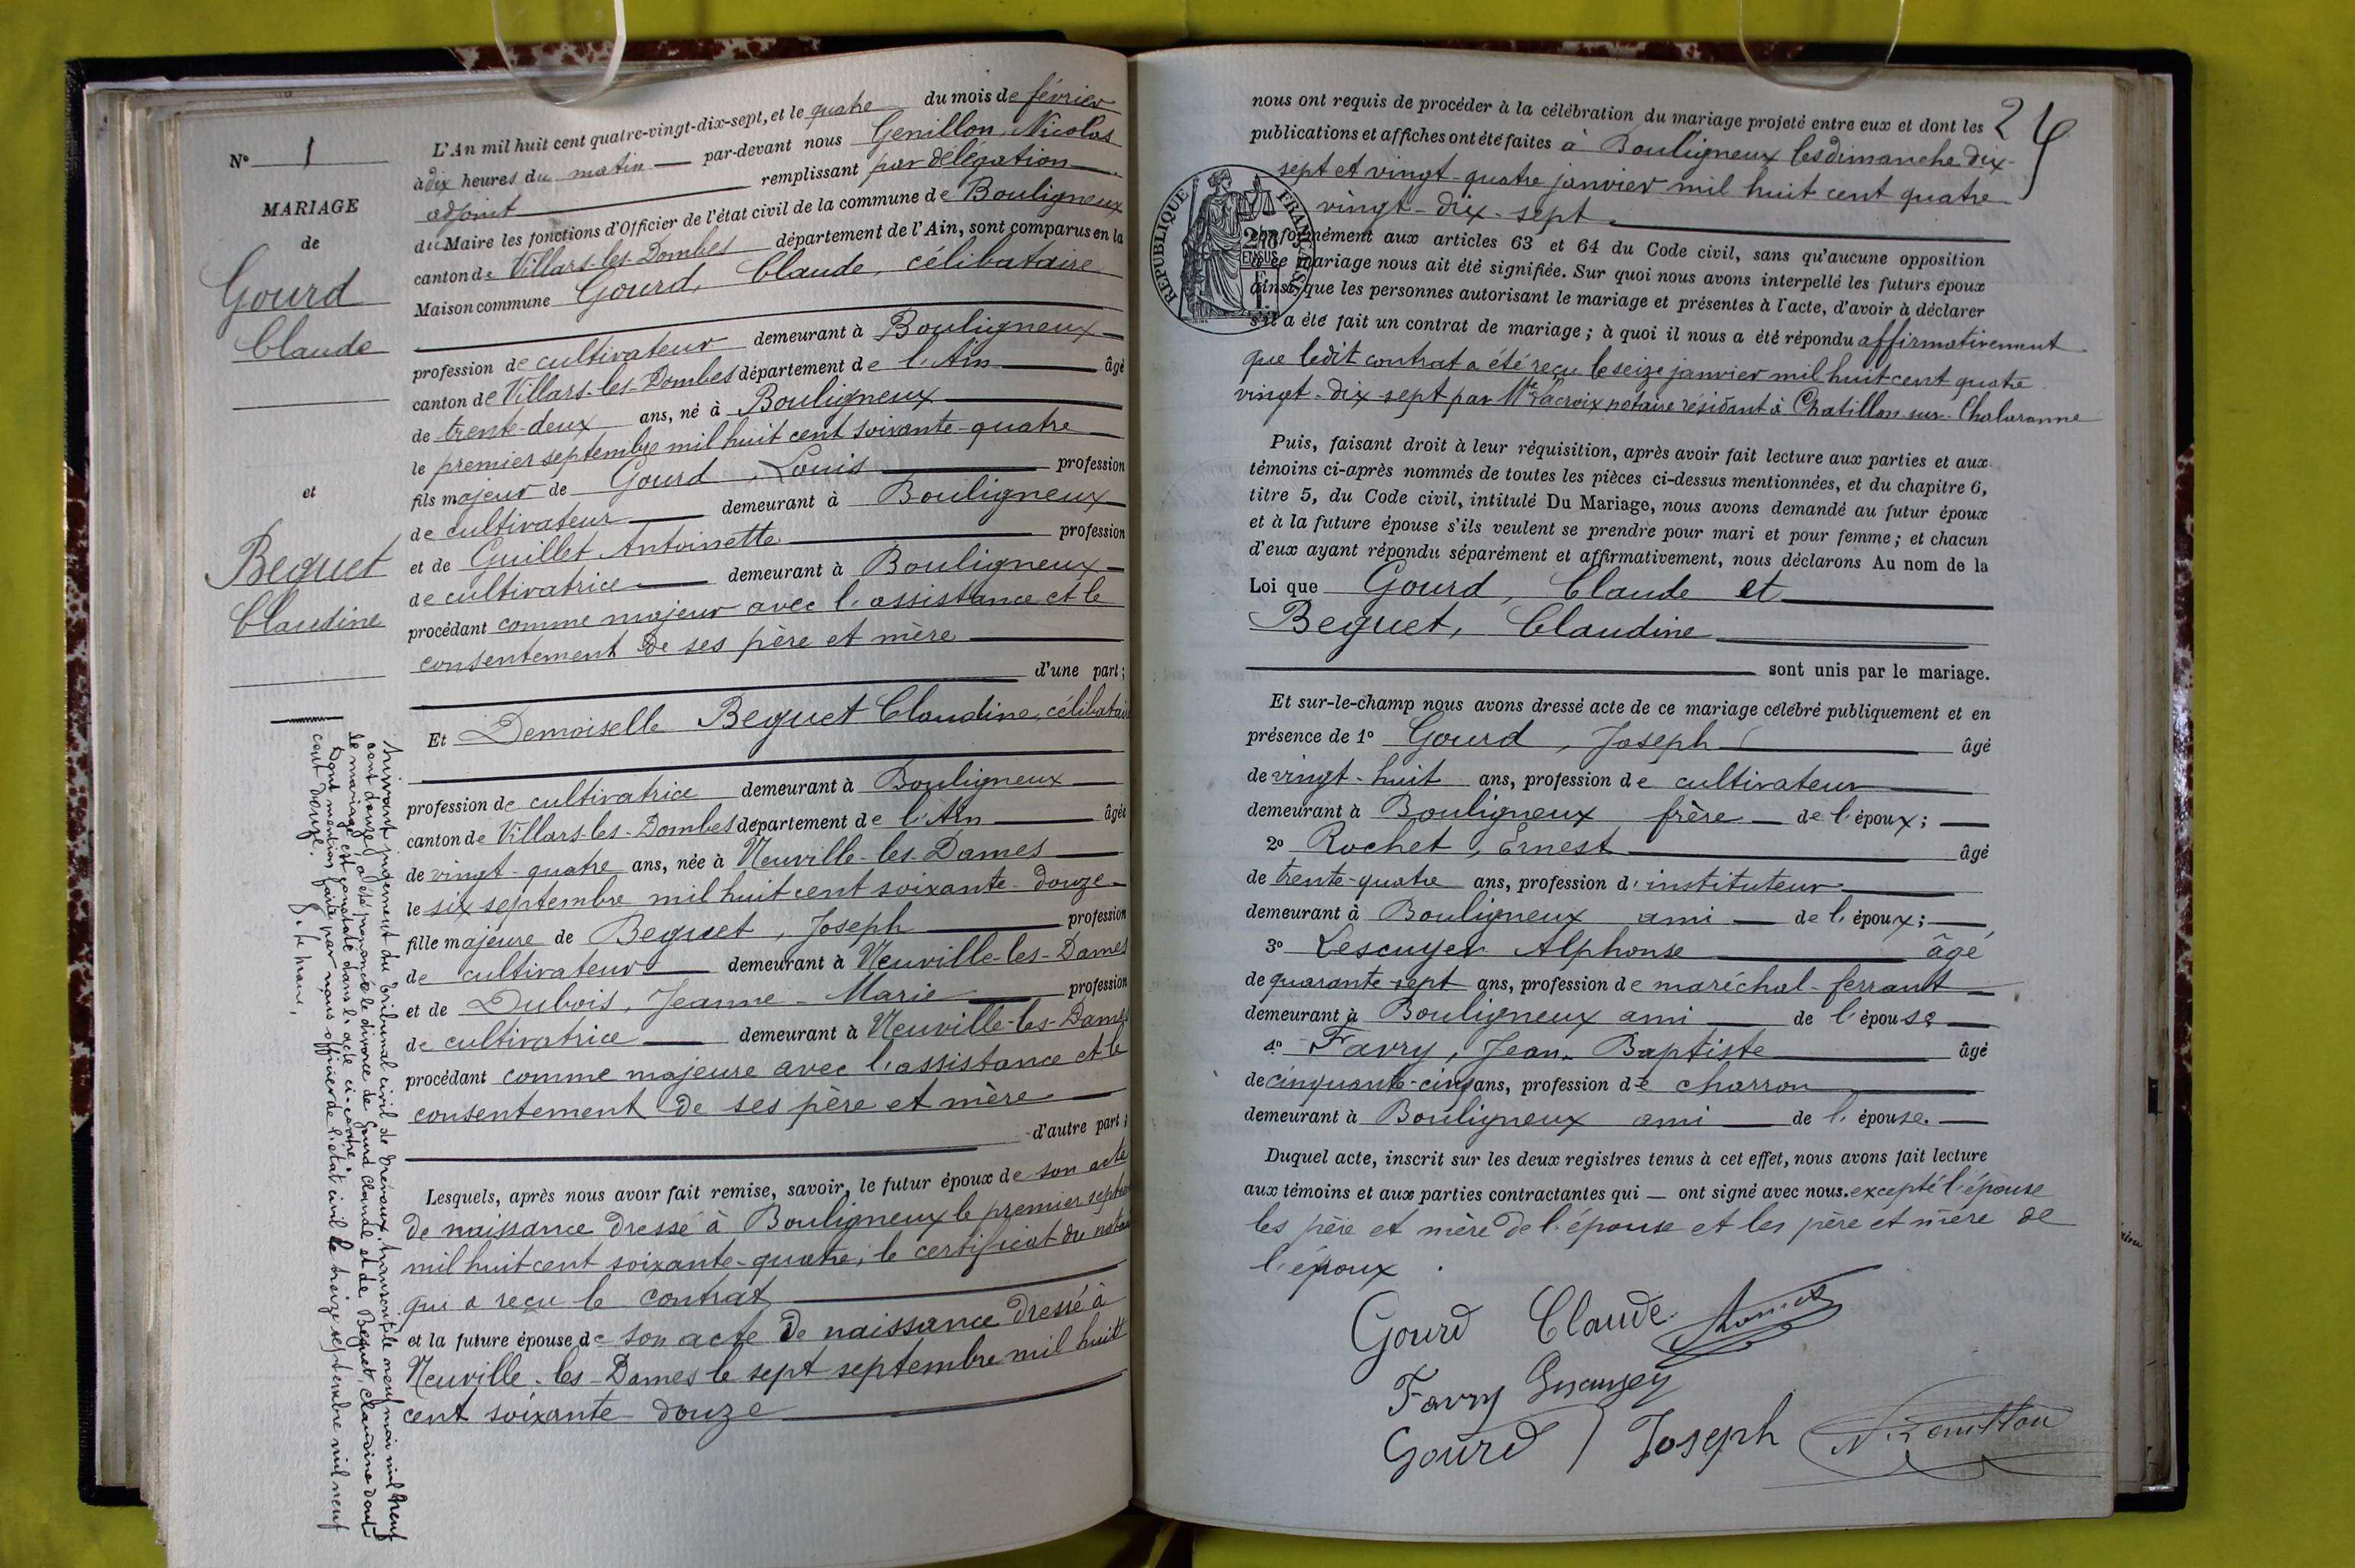 N° 1
MARIAGE
de
Gourd
Claude
et
Beguet
Claudine
Suivant jugement du tribunal civil de Trévoux, transcrit le neuf mai mil neuf
cent douze, a été prononcé le divorce de Gourd Claude et de Beguet, Claudine dont
le mariage est constaté dans l'acte ci-contre.
Dont mention faite par nous officier de l'état civil le treize septembre mil neuf
cent douze.
L'An mil huit cent quatre-vingt-dix-sept, et le quatre du mois de février
à dix heures du matin par-devant nous Genillon, Nicolas
adjoint remplissant par délégation
du Maire les fonctions d'Officier de l'état civil de la commune de Bouligneux
canton de Villars-les-Dombes département de l'Ain, sont comparus en la
Maison commune Gourd, Claude, célibataire
profession de cultivateur demeurant à Bouligneux
canton de Villars-les-Dombes département de l'Ain âgé
de trente-deux ans, né à Bouligneux
le premier septembre mil huit cent soixante-quatre
fils majeur de Gourd, Louis profession
de cultivateur demeurant à Bouligneux
et de Guillet Antoinette profession
de cultivatrice demeurant à Bouligneux
procédant comme majeur avec l'assistance et le
consentement de ses père et mère
d'une part;
Et Demoiselle Beguet Claudine, célibataire
profession de cultivatrice demeurant à Bouligneux
canton de Villars-les-Dombes département de l'Ain âgée
de vingt-quatre ans, née à Neuville-les-Dames
le six septembre mil huit cent soixante-douze
fille majeure de Beguet, Joseph profession
de cultivateur demeurant à Neuville-les-Dames
et de Dubois, Jeanne-Marie profession
de cultivatrice demeurant à Neuville-les-Dames
procédant comme majeure avec l'assistance et le
consentement de ses père et mère
d'autre part;
Lesquels, après nous avoir fait remise, savoir, le futur époux de son acte
de naissance dressé à Bouligneux le premier septembre
mil huit cent soixante-quatre, le certificat du notaire
qui a reçu le contrat
et la future épouse de son acte de naissance dressé à
Neuville-les-Dames le sept septembre mil huit
cent soixante-douze
24
nous ont requis de procéder à la célébration du mariage projeté entre eux et dont les
publications et affiches ont été faites à Bouligneux les dimanche dix-
sept et vingt-quatre janvier mil huit cent quatre
vingt-dix-sept
RÉPUBLIQUE FRANÇAISE
conformément aux articles 63 et 64 du Code civil, sans qu'aucune opposition
à ce mariage nous ait été signifiée. Sur quoi nous avons interpellé les futurs époux
ainsi que les personnes autorisant le mariage et présentes à l'acte, d'avoir à déclarer
s'il a été fait un contrat de mariage; à quoi il nous a été répondu affirmativement
que ledit contrat a été reçu le seize janvier mil huit cent quatre
vingt-dix sept par Mtre Lacroix notaire résidant à Chatillon sur-Chalaronne
Puis, faisant droit à leur réquisition, après avoir fait lecture aux parties et aux
témoins ci-après nommés de toutes les pièces ci-dessus mentionnées, et du chapitre 6,
titre 5, du Code civil, intitulé Du Mariage, nous avons demandé au futur époux
et à la future épouse s'ils veulent se prendre pour mari et pour femme; et chacun
d'eux ayant répondu séparément et affirmativement, nous déclarons Au nom de la
Loi que Gourd, Claude et
Beguet, Claudine
sont unis par le mariage.
Et sur-le-champ nous avons dressé acte de ce mariage célébré publiquement et en
présence de 1° Gourd, Joseph âgé
de vingt-huit ans, profession de cultivateur
demeurant à Bouligneux frère de l'époux;
2° Rochet, Ernest âgé
de trente-quatre ans, profession d'instituteur
demeurant à Bouligneux ami de l'époux;
3° Lescuyer Alphonse âgé
de quarante-sept ans, profession de maréchal-ferrant
demeurant à Bouligneux ami de l'épouse
4° Favry, Jean-Baptiste âgé
de cinquante-cinq ans, profession de charron
demeurant à Bouligneux ami de l'épouse.
Duquel acte, inscrit sur les deux registres tenus à cet effet, nous avons fait lecture
aux témoins et aux parties contractantes qui ont signé avec nous. excepté l'épouse
les père et mère de l'épouse et les père et mère de
l'époux.
Gourd Claude
Favry
Gourd Joseph N. Genillon